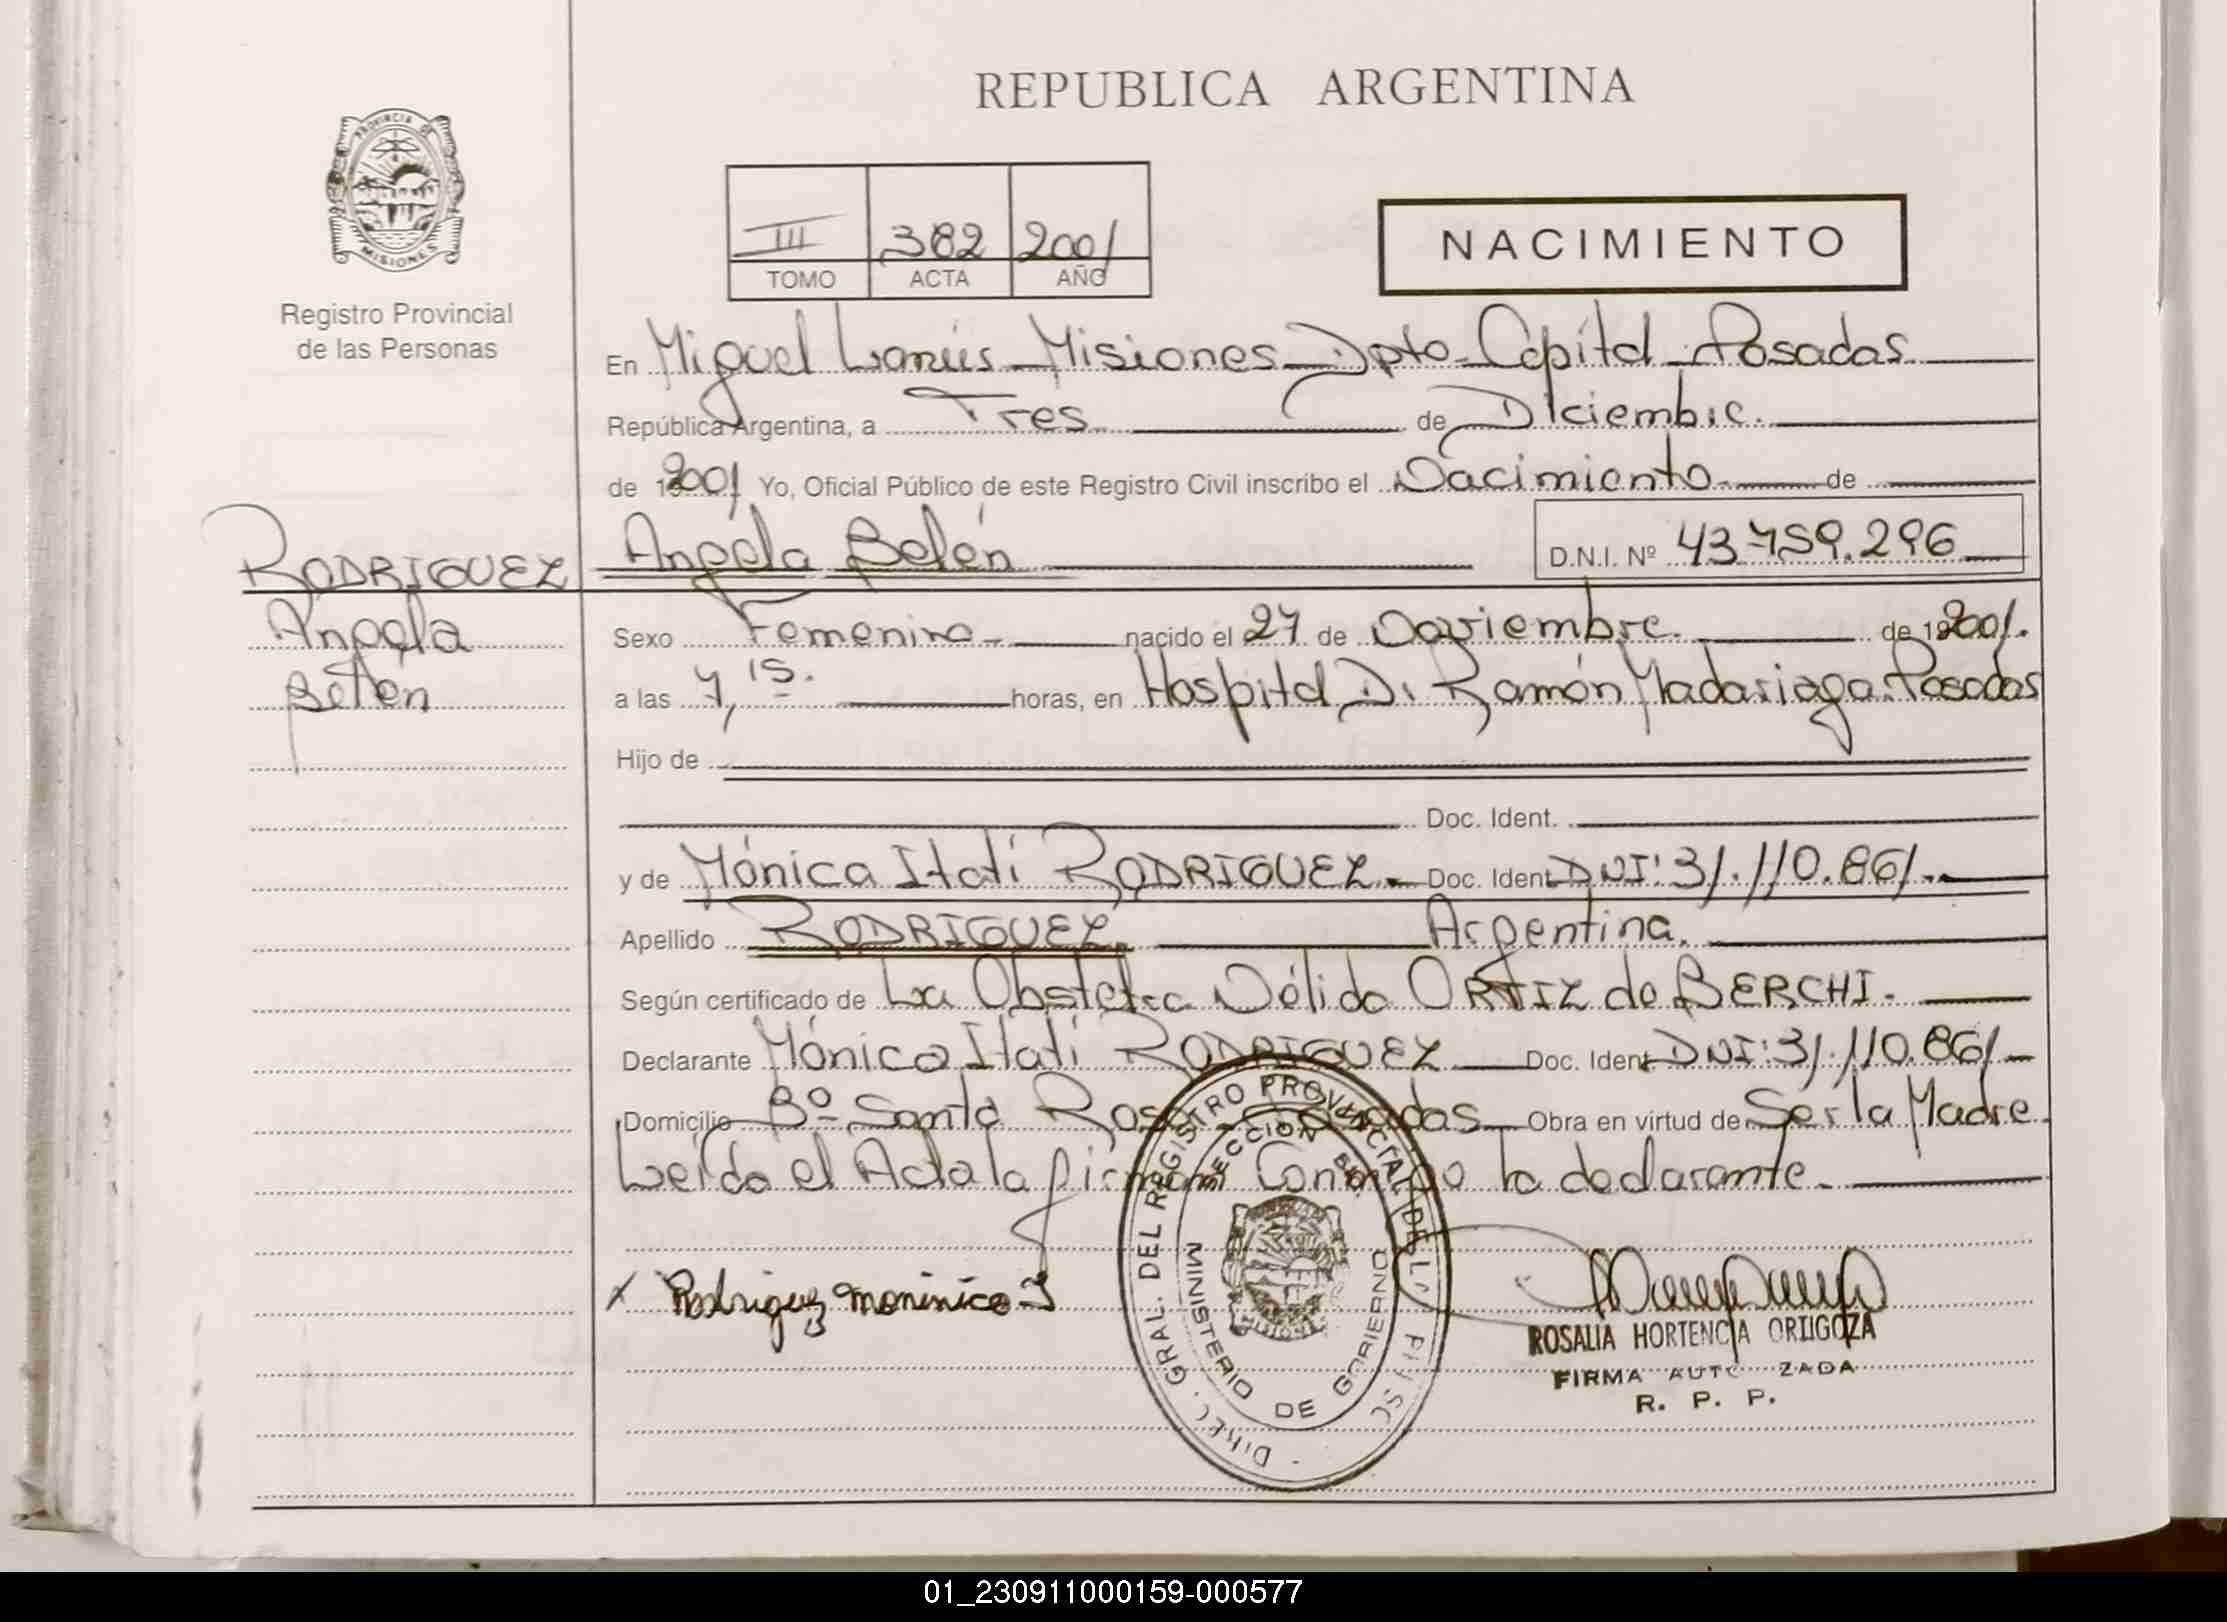 REPUBLICA ARGENTINA
PROVINCIA DE
MISIONES
Registro Provincial
de las Personas
III 382 2001
TOMO ACTA AÑO
NACIMIENTO
En Miguel Lanús - Misiones - Dpto - Capital - Posadas
República Argentina, a Tres de Diciembre.
de 2001 Yo, Oficial Público de este Registro Civil inscribo el Nacimiento de
RODRIGUEZ Angela Belén D.N.I. Nº 43.759.296
Angela
Belén
Sexo Femenino - nacido el 27 de Noviembre. de 2001.
a las 7,15. horas, en Hospital Dr Ramón Madariaga. Posadas
Hijo de
Doc. Ident.
y de Mónica Itatí RODRIGUEZ. - Doc. Ident DNI: 31.110.861. -
Apellido RODRIGUEZ. Argentina.
Según certificado de La Obstetra Nélida ORTIZ de BERCHI. -
Declarante Mónica Itatí RODRIGUEZ Doc. Ident DNI: 31.110.861 -
Domicilio Bº Santa Rosa - Posadas - Obra en virtud de Ser la Madre.
Leída el Acta la firma Conmigo la declarante. -
x Rodriguez moninica I
DIREC. GRAL. DEL REGISTRO PROVINCIAL DE L
MINISTERIO DE GOBIERNO
ROSALIA HORTENCIA ORTIGOZA
FIRMA AUTO ZADA
R. P. P.
01_230911000159-000577